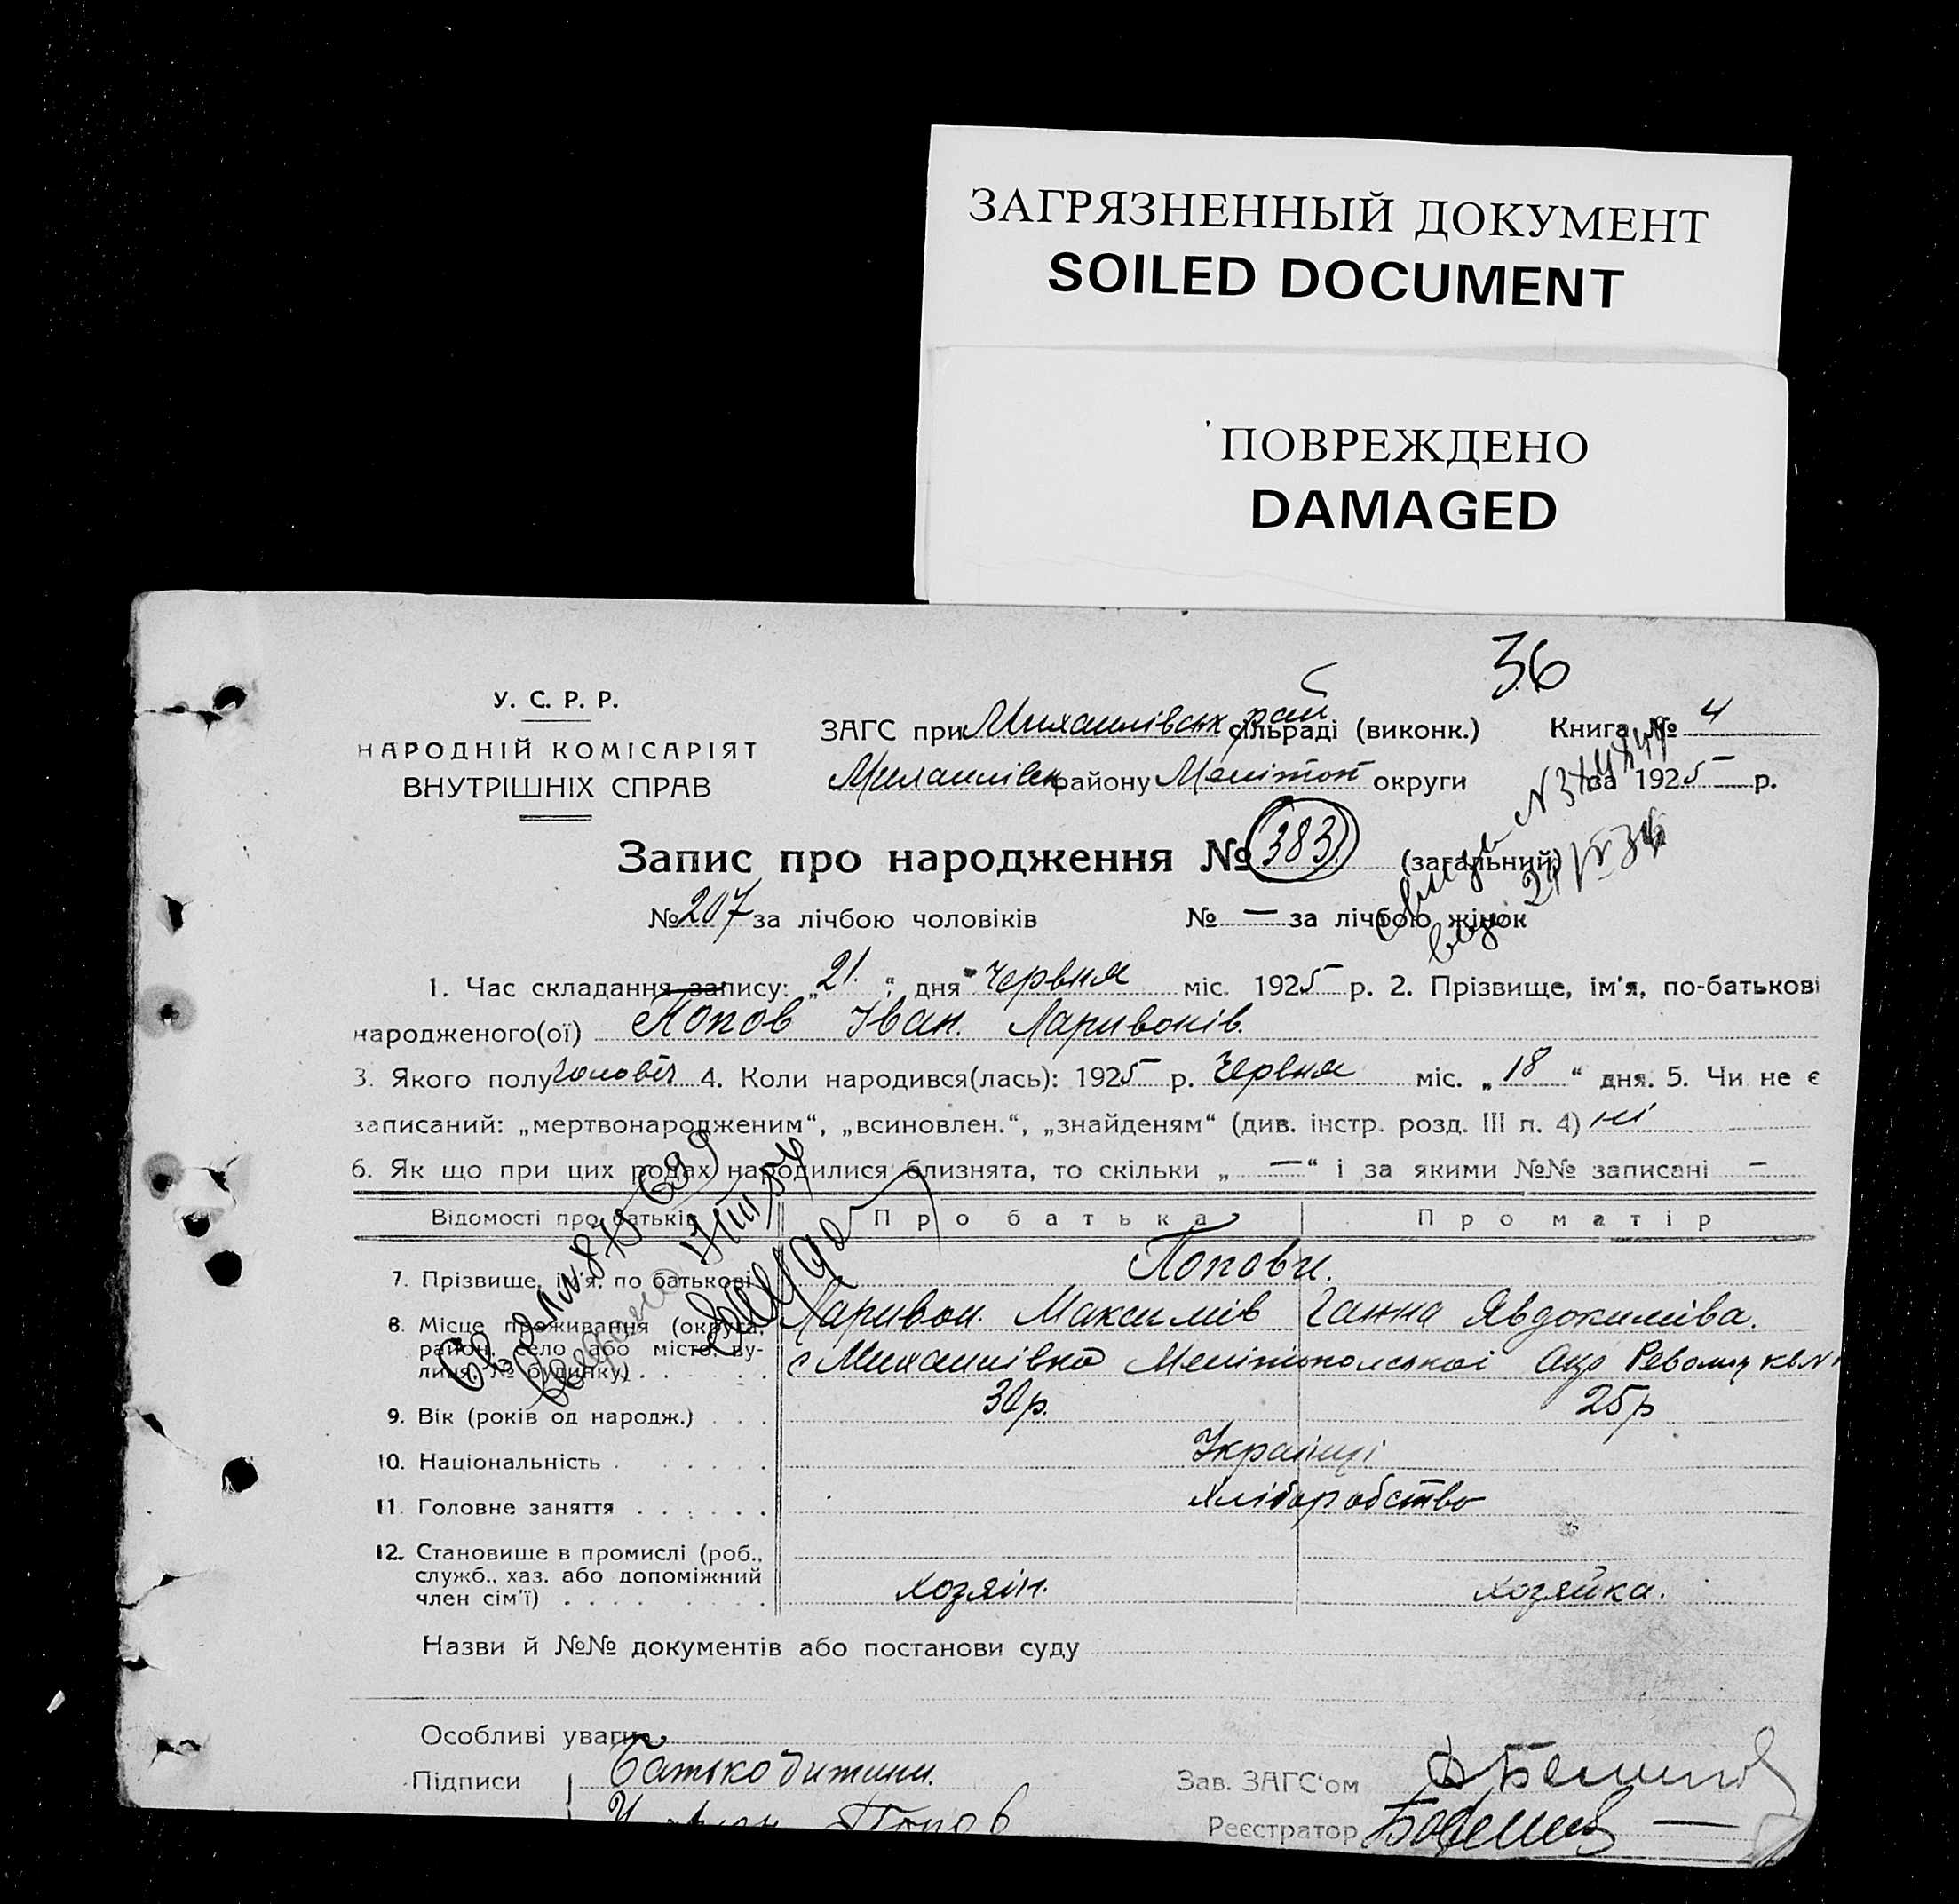 ЗАГРЯЗНЕННЫЙ ДОКУМЕНТ
SOILED DOCUMENT
ПОВРЕЖДЕНО
DAMAGED
36
У. С. Р. Р.
НАРОДНІЙ КОМІСАРІЯТ
ВНУТРІШНІХ СПРАВ
ЗАГС при Михаилівськ рай сільраді (виконк.) Книга № 4
Михаилівск району Мелітоп округи за 1925 р.
Запис про народження № 383 (загальний)
№ 207 за лічбою чоловіків № — за лічбою жінок
1. Час складання запису: „21.“ дня червня міс. 1925 р. 2. Прізвище, ім'я, по-батькові
народженого(ої) Попов Іван. Ларивонів.
3. Якого полу чоловіч 4. Коли народився(лась): 1925 р. червня міс. „18“ дня. 5. Чи не є
записаний: „мертвонародженим“, „всиновлен.“, „знайденям“ (див. інстр. розд. III п. 4) ні
6. Як що при цих родах народилися близнята, то скільки „—“ і за якими №№ записані —
Відомості про батьків Про батька Про матір
7. Прізвище, ім'я, по батькові Попови.
Ларивон. Максимів Ганна Явдокимівa.
8. Місце проживання (округа,
район, село або місто, ву-
лиця, № будинку) с Михаилівка Мелітопольської окр
9. Вік (років од народж.) 30р. 25р
10. Національність Українці
11. Головне заняття хліборобство
12. Становище в промислі (роб.,
служб., хаз. або допоміжний
член сім'ї) хозяїн. хозяйка.
Назви й №№ документів або постанови суду
Особливі уваги
Підписи Батько дитини. Зав. ЗАГС'ом
Попов Реєстратор